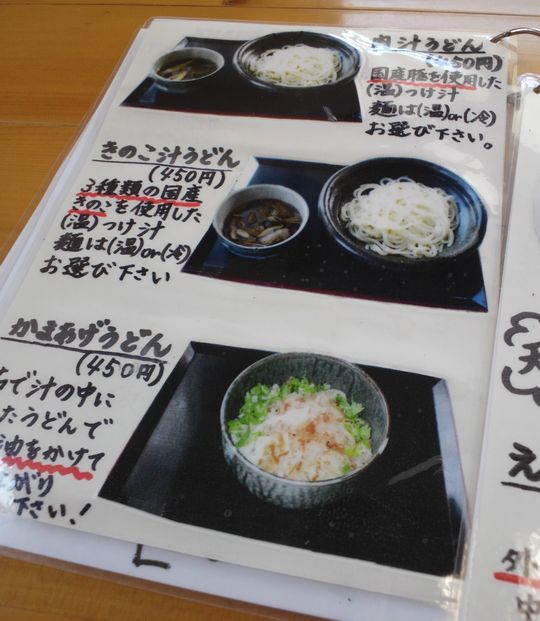 肉汁うどん
(450円)
国産豚を使用した
(温)つけ汁
麺は(温)or(冷)
お選び下さい。
きのこ汁うどん
(450円)
3種類の国産
きのこを使用した
(温)つけ汁
麺は(温)or(冷)
お選び下さい
かまあげうどん
(450円)
で汁の中に
たうどんで
油をかけて
がり
下さい!
天
え
外
中